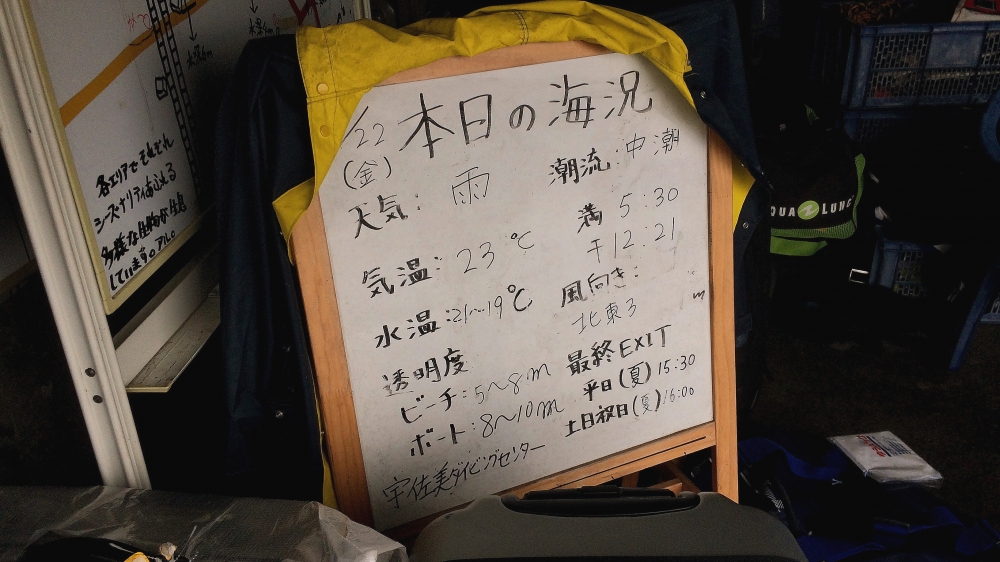 本日の海況
/22
(金)
天気: 雨
気温: 23℃
水温: 21~19℃
透明度
ビーチ: 5~8m
ボート: 8~10m
宇佐美ダイビングセンター
潮流: 中潮
満 5:30
干 12:21
風向き:
北東3 m
最終EXIT
平日(夏) 15:30
土日祝日(夏) 16:00
各エリアでそれぞれ
シーズナリティあふれる
多様な生物が生息
しています。
QUA LUNG